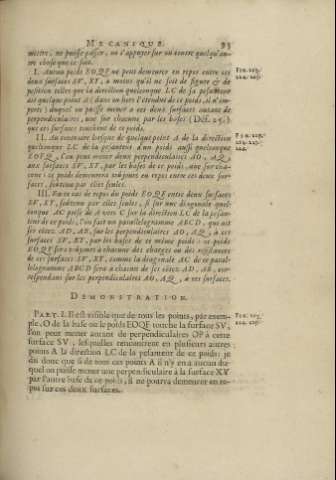 MECANIQUE. 93
mettre, ne puisse passer, ou s'appuyer sur un contre quelqu'au-
tre chose que ce soit.
I. Aucun poids EOQF ne peut demeurer en repos entre ces
deux surfaces SV, XY, à moins qu'il ne soit de figure & de
position telles que la direction quelconque LC de sa pesanteur
ait quelque point A dans ou hors l'étendue de ce poids, si n'im-
porte) duquel on puisse mener à ces deux surfaces autant de
perpendiculaires, une sur chacune par les bases (Def. 25.)
que ces surfaces touchent de ce poids.
II. Au contraire lorsque de quelque point A de la direction
quelconque LC de la pesanteur d'un poids aussi quelconque
EOFQ, l'on peut mener deux perpendiculaires AO, AQ, à
aux surfaces SV, XY, par les bases de ce poids, une sur cha-
cune: ce poids demeurera toujours en repos entre ces deux sur-
faces, soutenu par elles seules.
III. En ce cas de repos du poids EOQF entre deux surfaces
SV, XY, soutenu par elles seules, si sur une diagonale quel-
conque AC prise de A vers C sur la direction LC de la pesan-
teur de ce poids, l'on fait un parallelogramme ABCD, qui ait
ses côtez AD, AB, sur les perpendiculaires AO, AQ, à ces
surfaces SV, XY, par les bases de ce même poids: ce poids
EOQF sera toujours à chacune des charges ou des résistances
de ces surfaces SV, XY, comme la diagonale AC de ce paral-
lelogramme ABCD sera à chacun de ses côtez AD, AB, cor-
respondans sur les perpendiculaires AO, AQ, à ces surfaces.
DEMONSTRATION.
PART. I. Il est visible que de tous les points, par exem-
ple, O de la base ou le poids EOQF touche la surface SV,
l'on peut mener autant de perpendiculaires OP à cette
surface SV, lesquelles rencontrent en plusieurs autres
points A la direction LC de la pesanteur de ce poids: je
dis donc que si de tous ces points A il n'y en a aucun du-
quel on puisse mener une perpendiculaire à la surface XY
par l'autre base de ce poids, il ne pourra demeurer en re-
pos sur ces deux surfaces.